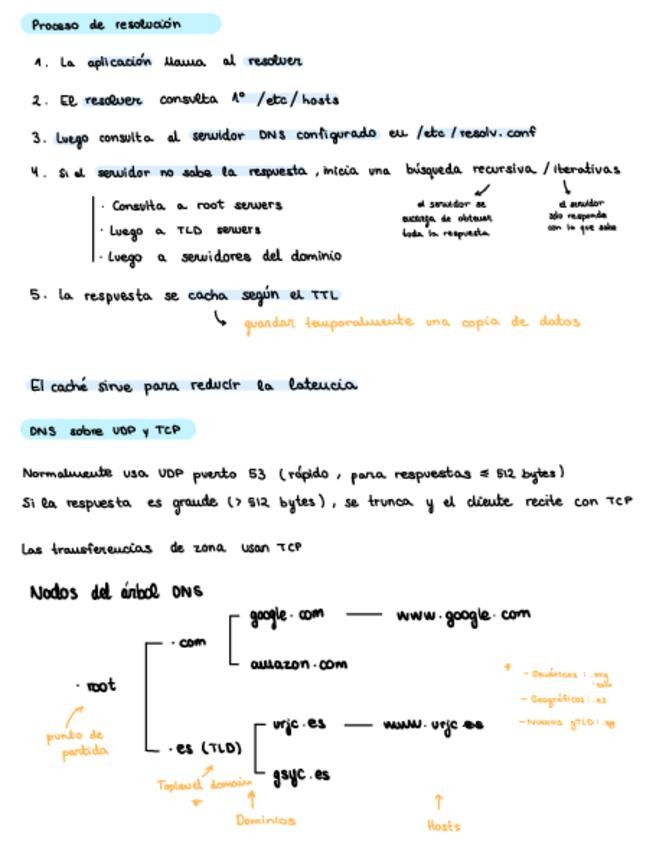 Proceso de resolución
1. La aplicación llama al resolver
2. El resolver consulta 1º /etc/hosts
3. Luego consulta al servidor DNS configurado en /etc/resolv.conf
4. Si el servidor no sabe la respuesta, inicia una búsqueda recursiva / iterativas
el servidor se
encarga de obtener
toda la respuesta
el servidor
solo responde
con lo que sabe
· Consulta a root servers
· Luego a TLD servers
· Luego a servidores del dominio
5. La respuesta se cacha según el TTL
guardar temporalmente una copia de datos
El caché sirve para reducir la latencia
DNS sobre UDP y TCP
Normalmente usa UDP puerto 53 (rápido, para respuestas ≤ 512 bytes)
Si la respuesta es grande (> 512 bytes), se trunca y el cliente recite con TCP
Las transferencias de zona usan TCP
Nodos del árbol DNS
google.com — www.google.com
.com
amazon.com
* - Genéricos: .org
.com
. root
- Geográficos: .es
urjc.es — www.urjc.es
- Nuevos gTLD:
punto de
partida
.es (TLD)
gsyc.es
Toplevel domain
*
Dominios
Hosts